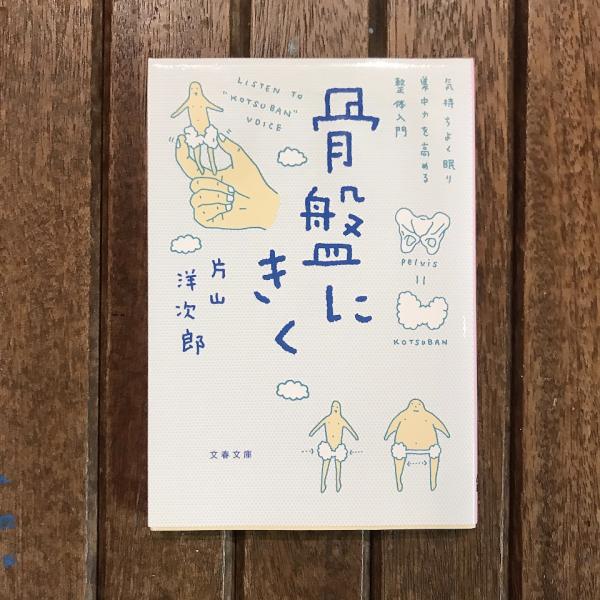 気持ちよく眠り
集中力を高める
整体入門
骨盤に
きく
片山
洋次郎
LISTEN TO
"KOTSUBAN"
VOICE
pelvis
=
KOTSUBAN
文春文庫